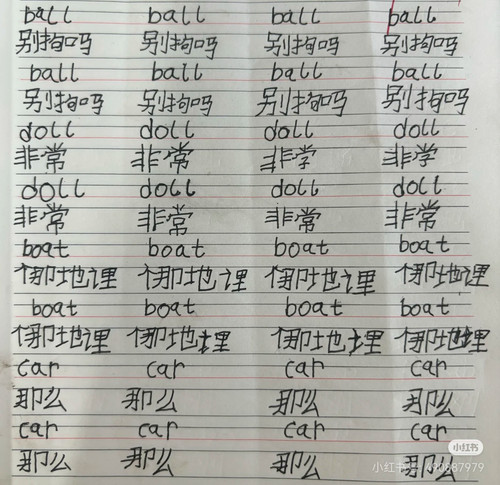 ball ball ball ball
别拘吗 别拘吗 别拘吗 别拘吗
ball ball ball ball
别拘吗 别拘吗 别拘吗 别拘吗
doll doll doll doll
非常 非常 非学 非学
doll doll doll doll
非常 非常 非常 非常
boat boat boat boat
地 地 地 地
boat boat boat boat
地 地埋 地埋 地埋
car car car car
那么 那么 那么 那么
car car car car
那么 那么 那么 那么
小红书
小红书